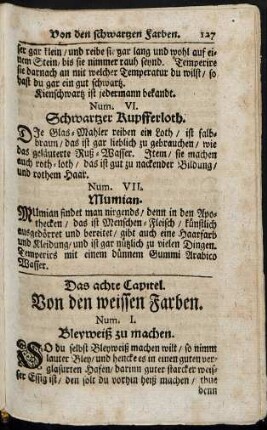 Von den schwartzen Farben. 127
ser gar klein / und reibe sie gar lang und wohl auf ei-
nem Stein / bis sie nimmer rauh seynd. Temperirs
sie darnach an mit welcher Temperatur du wilst / so
hast du gar ein gut schwartz.
Kienschwartz ist jedermann bekandt.
Num. VI.
Schwartzer Kupfferloth.
DJe Glas-Mahler reiben ein Loth / ist salb-
braun / das ist gar lieblich zu gebrauchen / wie
das geläuterte Ruß-Wasser. Item / sie machen
auch roth-loth / das ist gut zu nackender Bildung /
und rothem Haar.
Num. VII.
Mumian.
MUmian findet man nirgends / denn in den Apo-
thecken / das ist Menschen-Fleisch / künstlich
ausgedörret und bereitet / gibt auch eine Haarfarb
und Kleidung / und ist gar nützlich zu vielen Dingen.
Temperirs mit einem dünnem Gummi Arabico
Wasser.
Das achte Capitel.
Von den weissen Farben.
Num. I.
Bleyweiß zu machen.
SO du selbst Bleyweiß machen wilt / so nimm
lauter Bley / und hencke es in einen guten ver-
glasurten Hafen / darinn guter starcker weis-
ser Essig ist / den solt du vorhin heiß machen / thue
denn